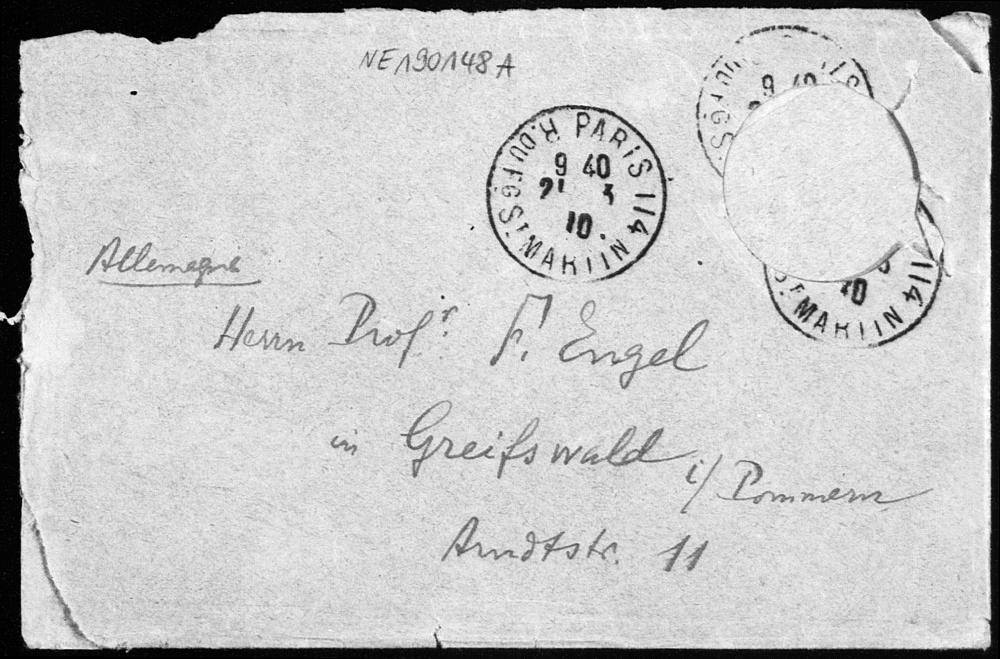 NE190148A
R. DU FG ST MARTIN PARIS 114
9 40
21 3
10.
9 40
10
ST MARTIN 114
Allemagne
Herrn Profr. F. Engel
in Greifswald i/ Pommern
Arndtstr. 11